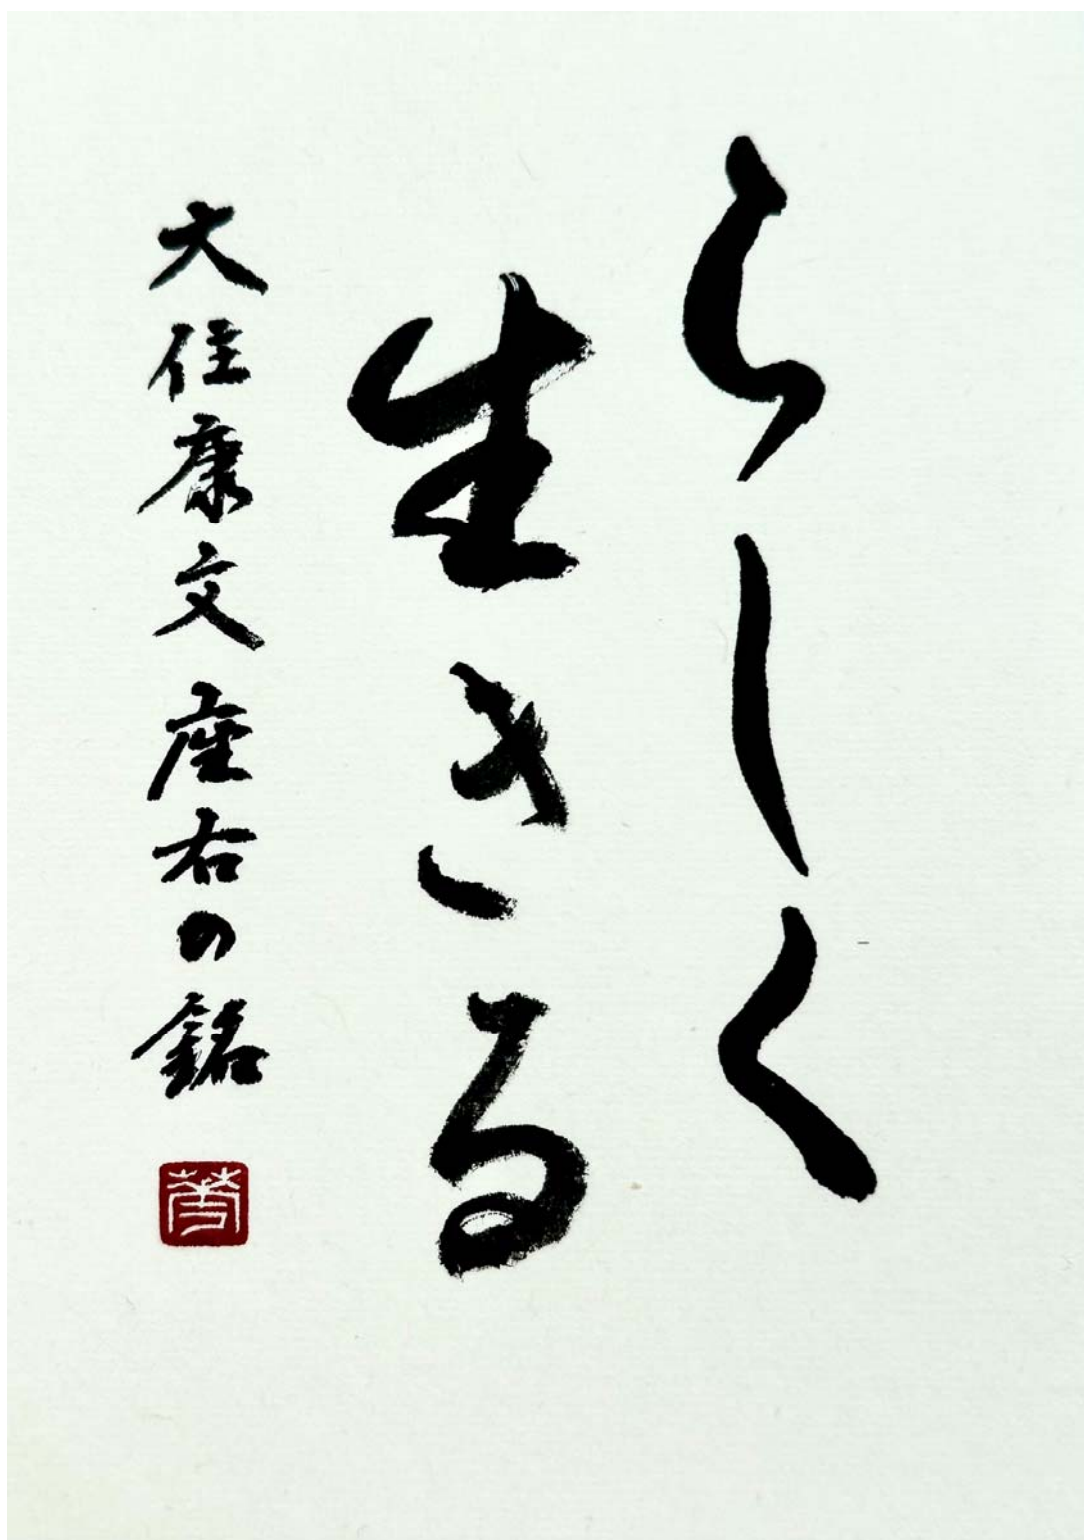 らしく
生きる
大住康文座右の銘